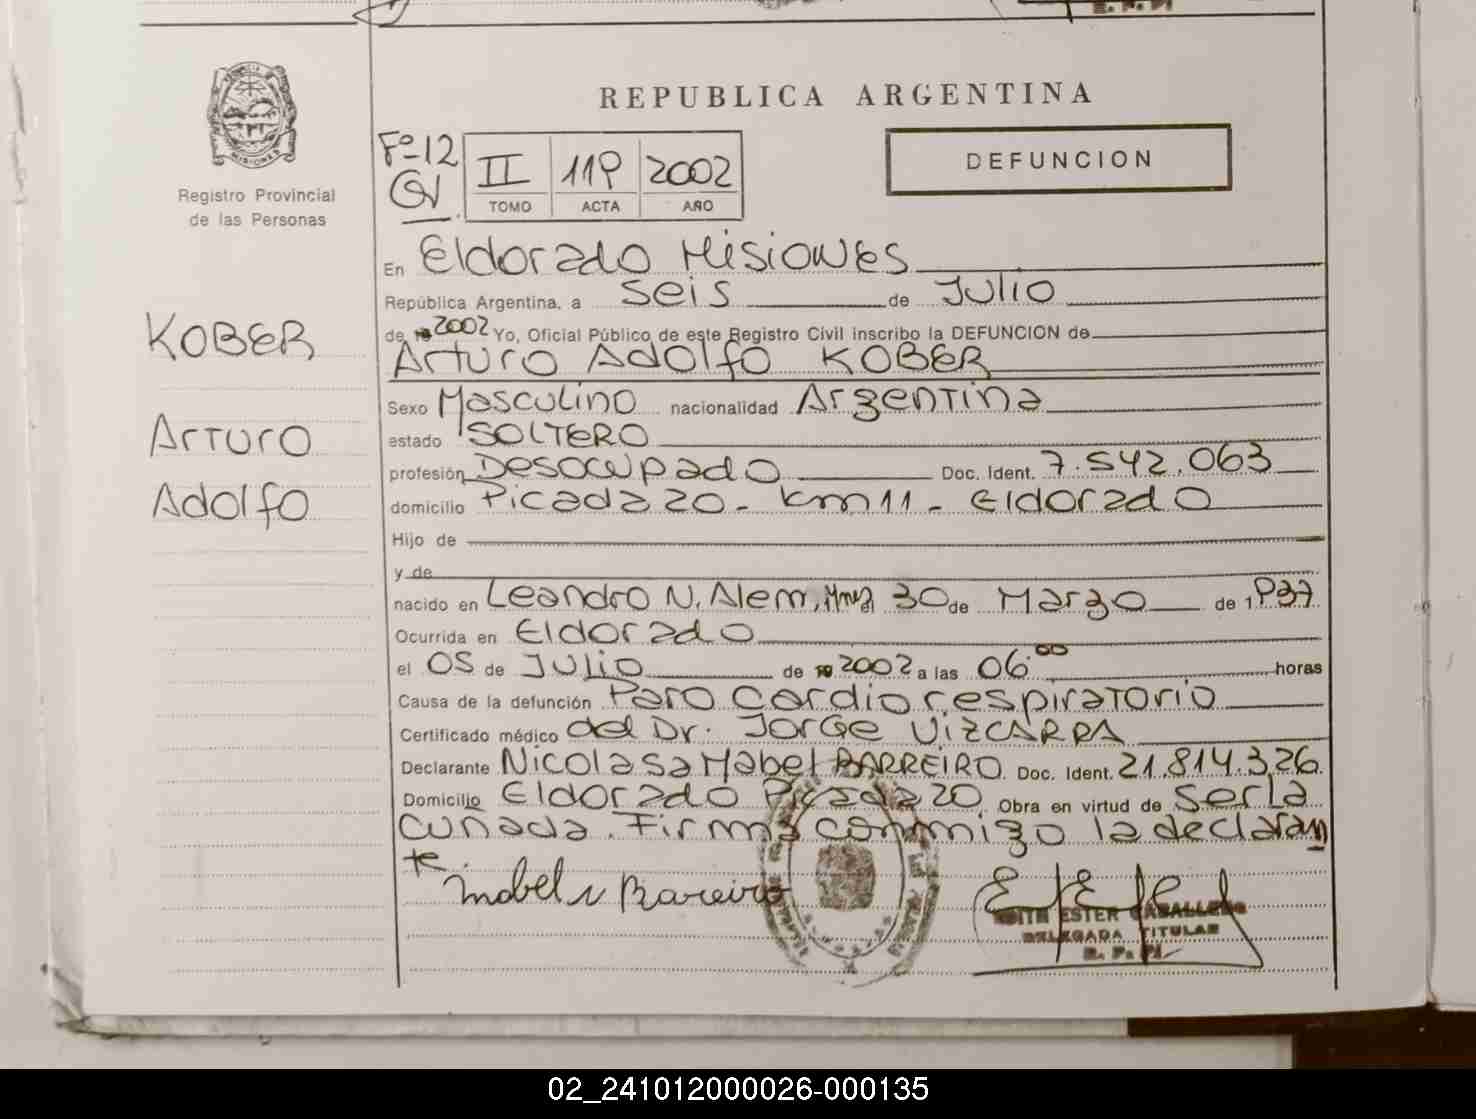 REPUBLICA ARGENTINA
DEFUNCION
Registro Provincial
de las Personas
Fº-12
II 119 2002
TOMO ACTA AÑO
En Eldorado Misiones
República Argentina, a seis de Julio
de 2002 Yo, Oficial Público de este Registro Civil inscribo la DEFUNCION de
Arturo Adolfo KOBER
KOBER
Arturo
Adolfo
Sexo Masculino nacionalidad Argentina
estado SOLTERO
profesión Desocupado Doc. Ident. 7.542.063
domicilio Picada 20 - Km 11 - Eldorado
Hijo de
y de
nacido en Leandro N. Alem, Mnes el 30 de Marzo de 1.937
Ocurrida en Eldorado
el 05 de JULIO de 2002 a las 06:00 horas
Causa de la defunción Paro cardiorespiratorio
Certificado médico del Dr. JORGE VIZCARRA
Declarante Nicolasa Mabel BARREIRO Doc. Ident. 21.814.326
Domicilio Eldorado Picada 20 Obra en virtud de ser la
cuñada. Firma conmigo la declaran
te.
Mabel N Bareiro
EDITH ESTER CABALLERO
DELEGADA TITULAR
R. P. P.
02_241012000026-000135